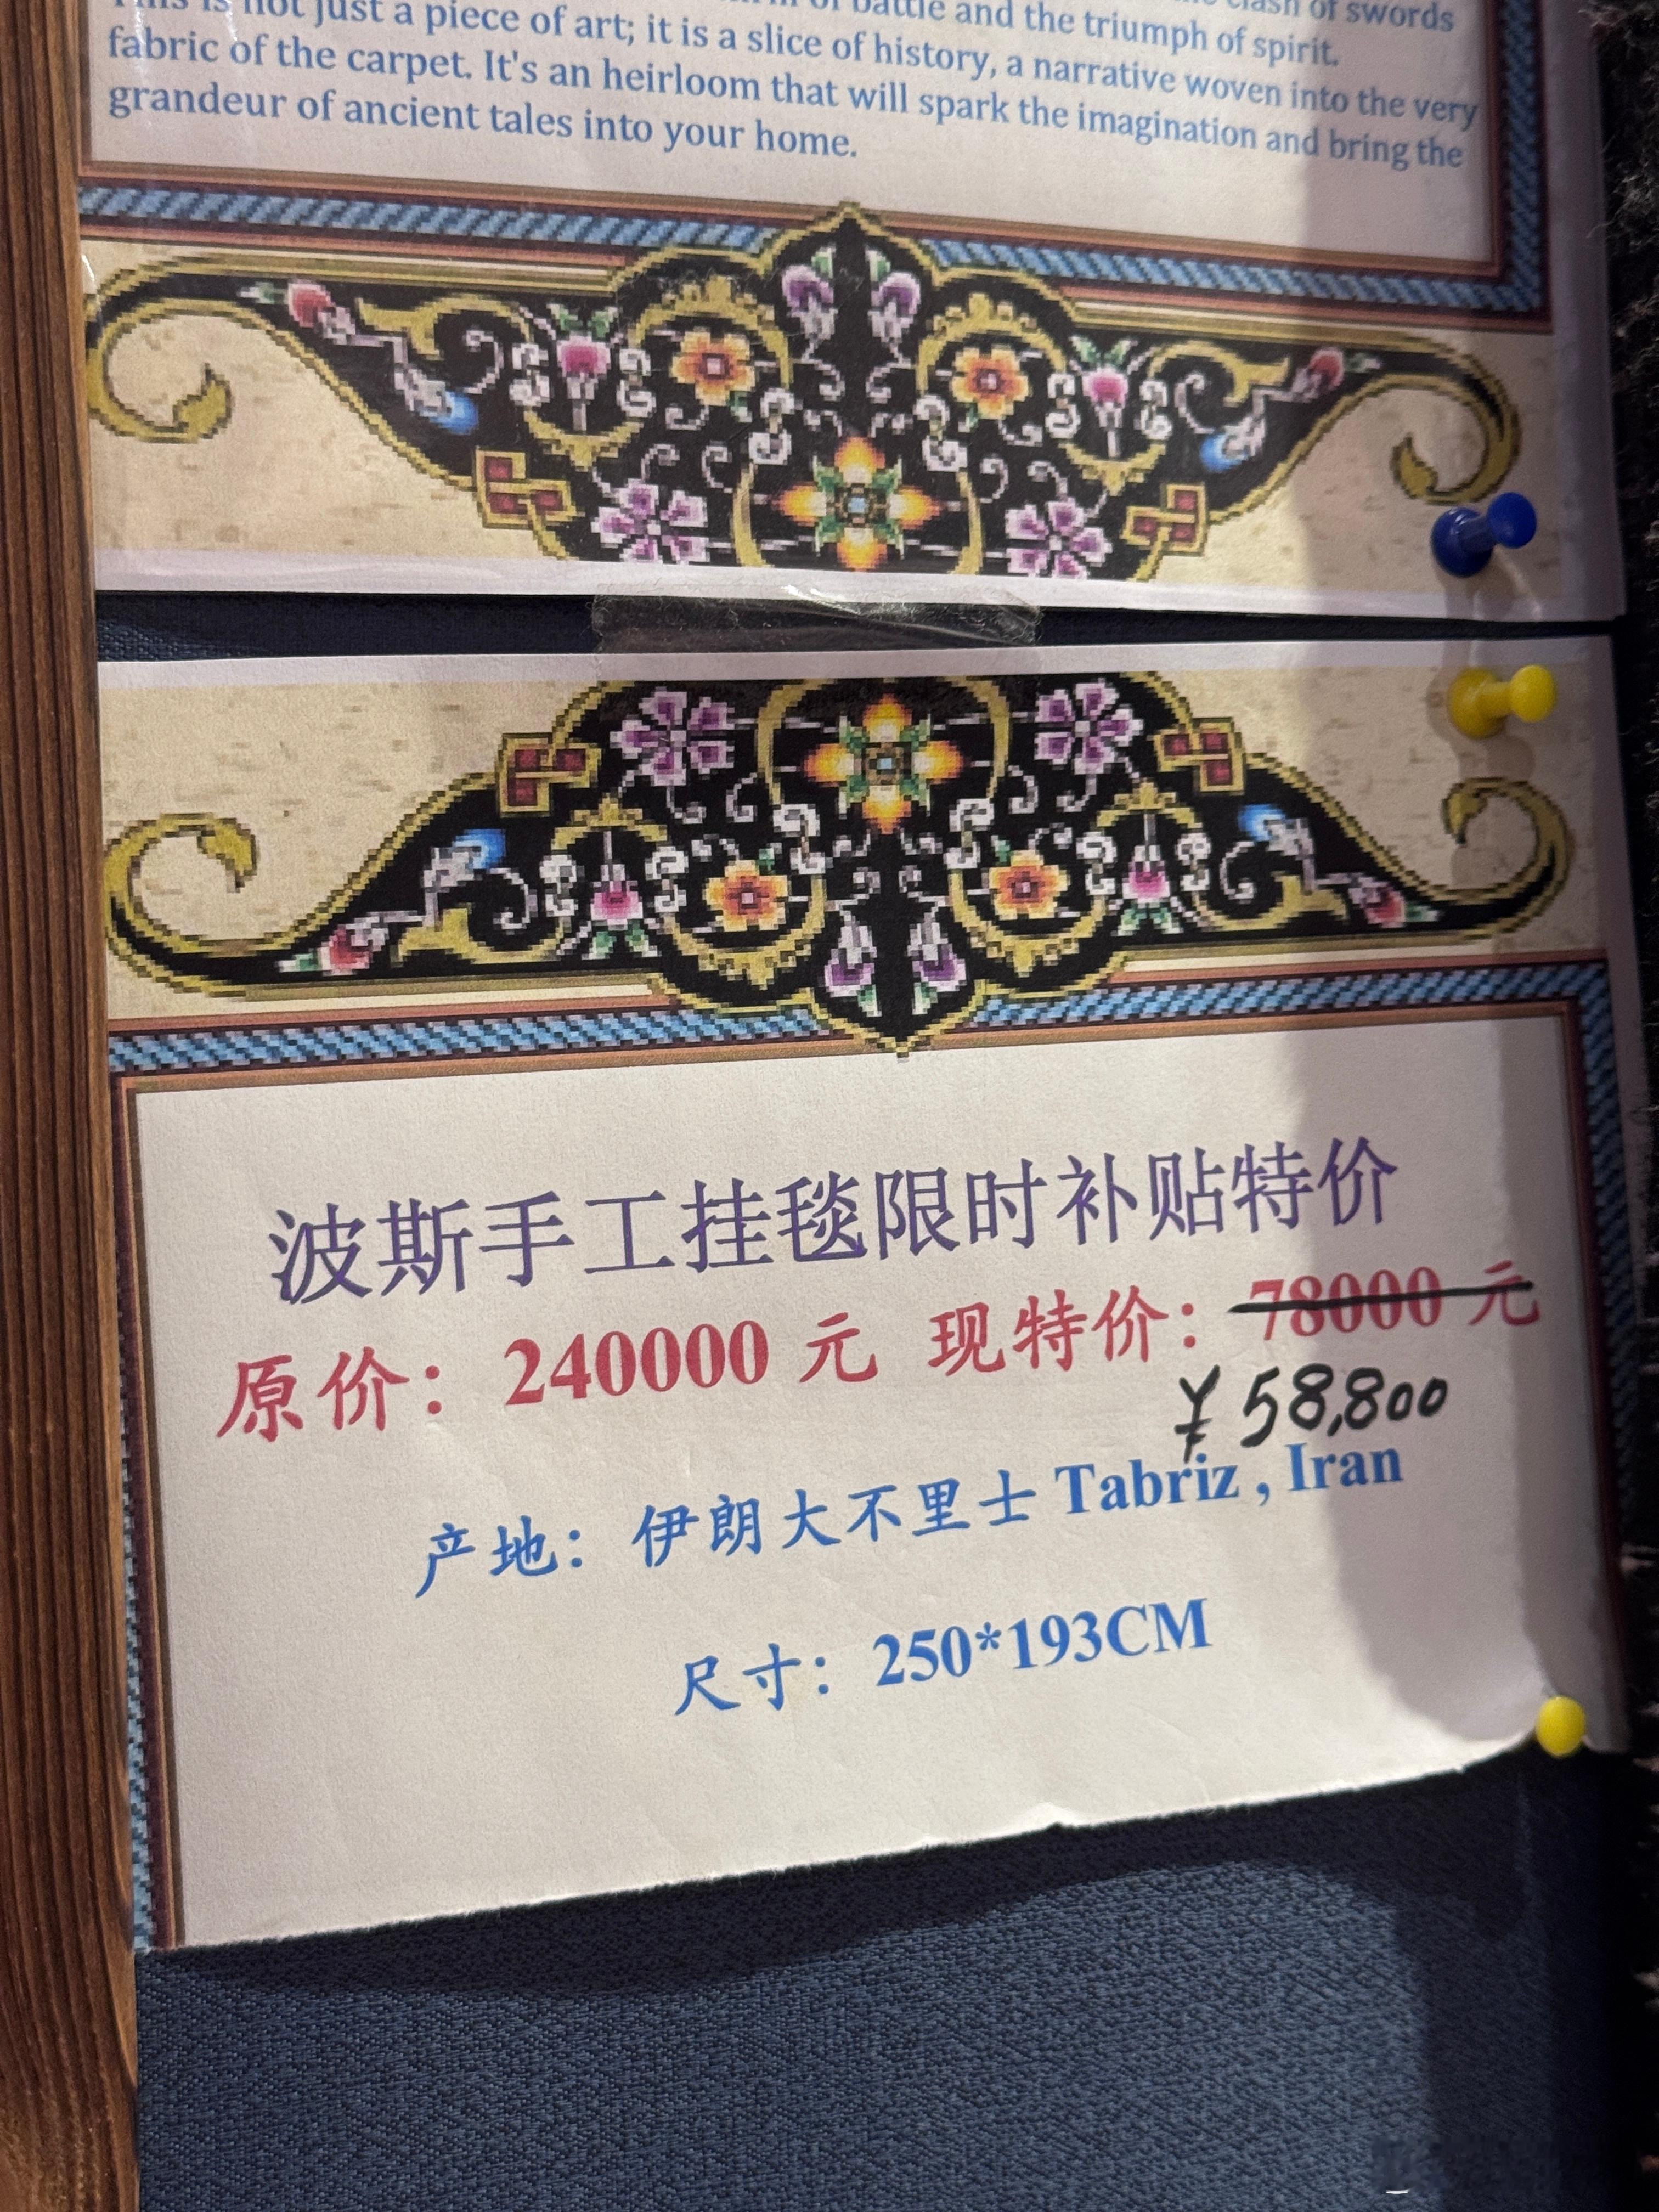 This is not just a piece of art; it is a slice of history, a narrative woven into the very
battle and the triumph of spirit.
clash of swords
fabric of the carpet. It's an heirloom that will spark the imagination and bring the
grandeur of ancient tales into your home.
波斯手工挂毯限时补贴特价
原价：240000 元 现特价：78000 元
¥58,800
产地：伊朗大不里士 Tabriz , Iran
尺寸：250*193CM